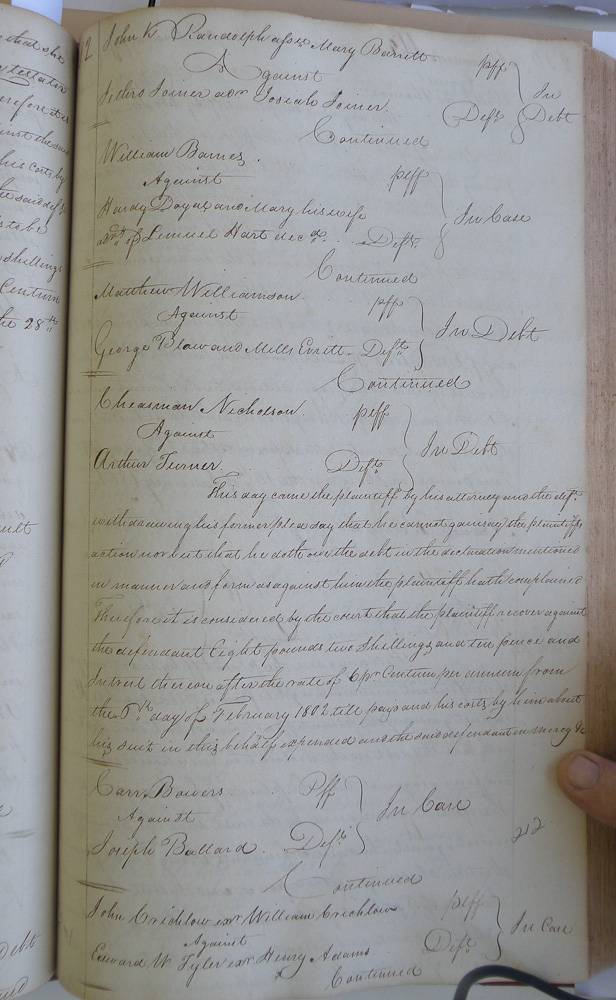 that she
testator
Therefore it is
his costs by
to be
shillings
Centum
the 28th
Debt
2 John K Randolph asse. Mary Barrett pff
Against In
Jethro Joiner adr. Josiah Joiner Deft. Debt
Continued
William Barnes plff
Against
Hardy Doyal and Mary his wife In Case
of Lemuel Hart decd. Defts.
Continued
Matthew Williamson pff
Against In Debt
George Blow and Mills Everitt Defts.
Continued
Cheasman Nicholson plff
Against In Debt
Arthur Turner Deft.
This day came the plaintiff by his attorney and the deft.
withdrawing his former plea say that he cannot gainsay the plaintiffs
action nor but that he doth owe the debt in the declaration mentioned
in manner and form as against him the plaintiff hath complained
Therefore it is considered by the court that the plaintiff recover against
the defendant Eight pounds two Shillings and ten pence and
Intrest thereon after the rate of 6 pr Centum per annum from
the day of February 1802 till paid and his costs by him about
his suit in this behalf expended and the said defendant in mercy &c
Carr Bowers Pff
Against In Case
Joseph Ballard Deft.
212
Continued
John Crichlow exr William Crichlow plff
Against In Case
Edward W. Tyler exr Henry Adams Deft.
Continued